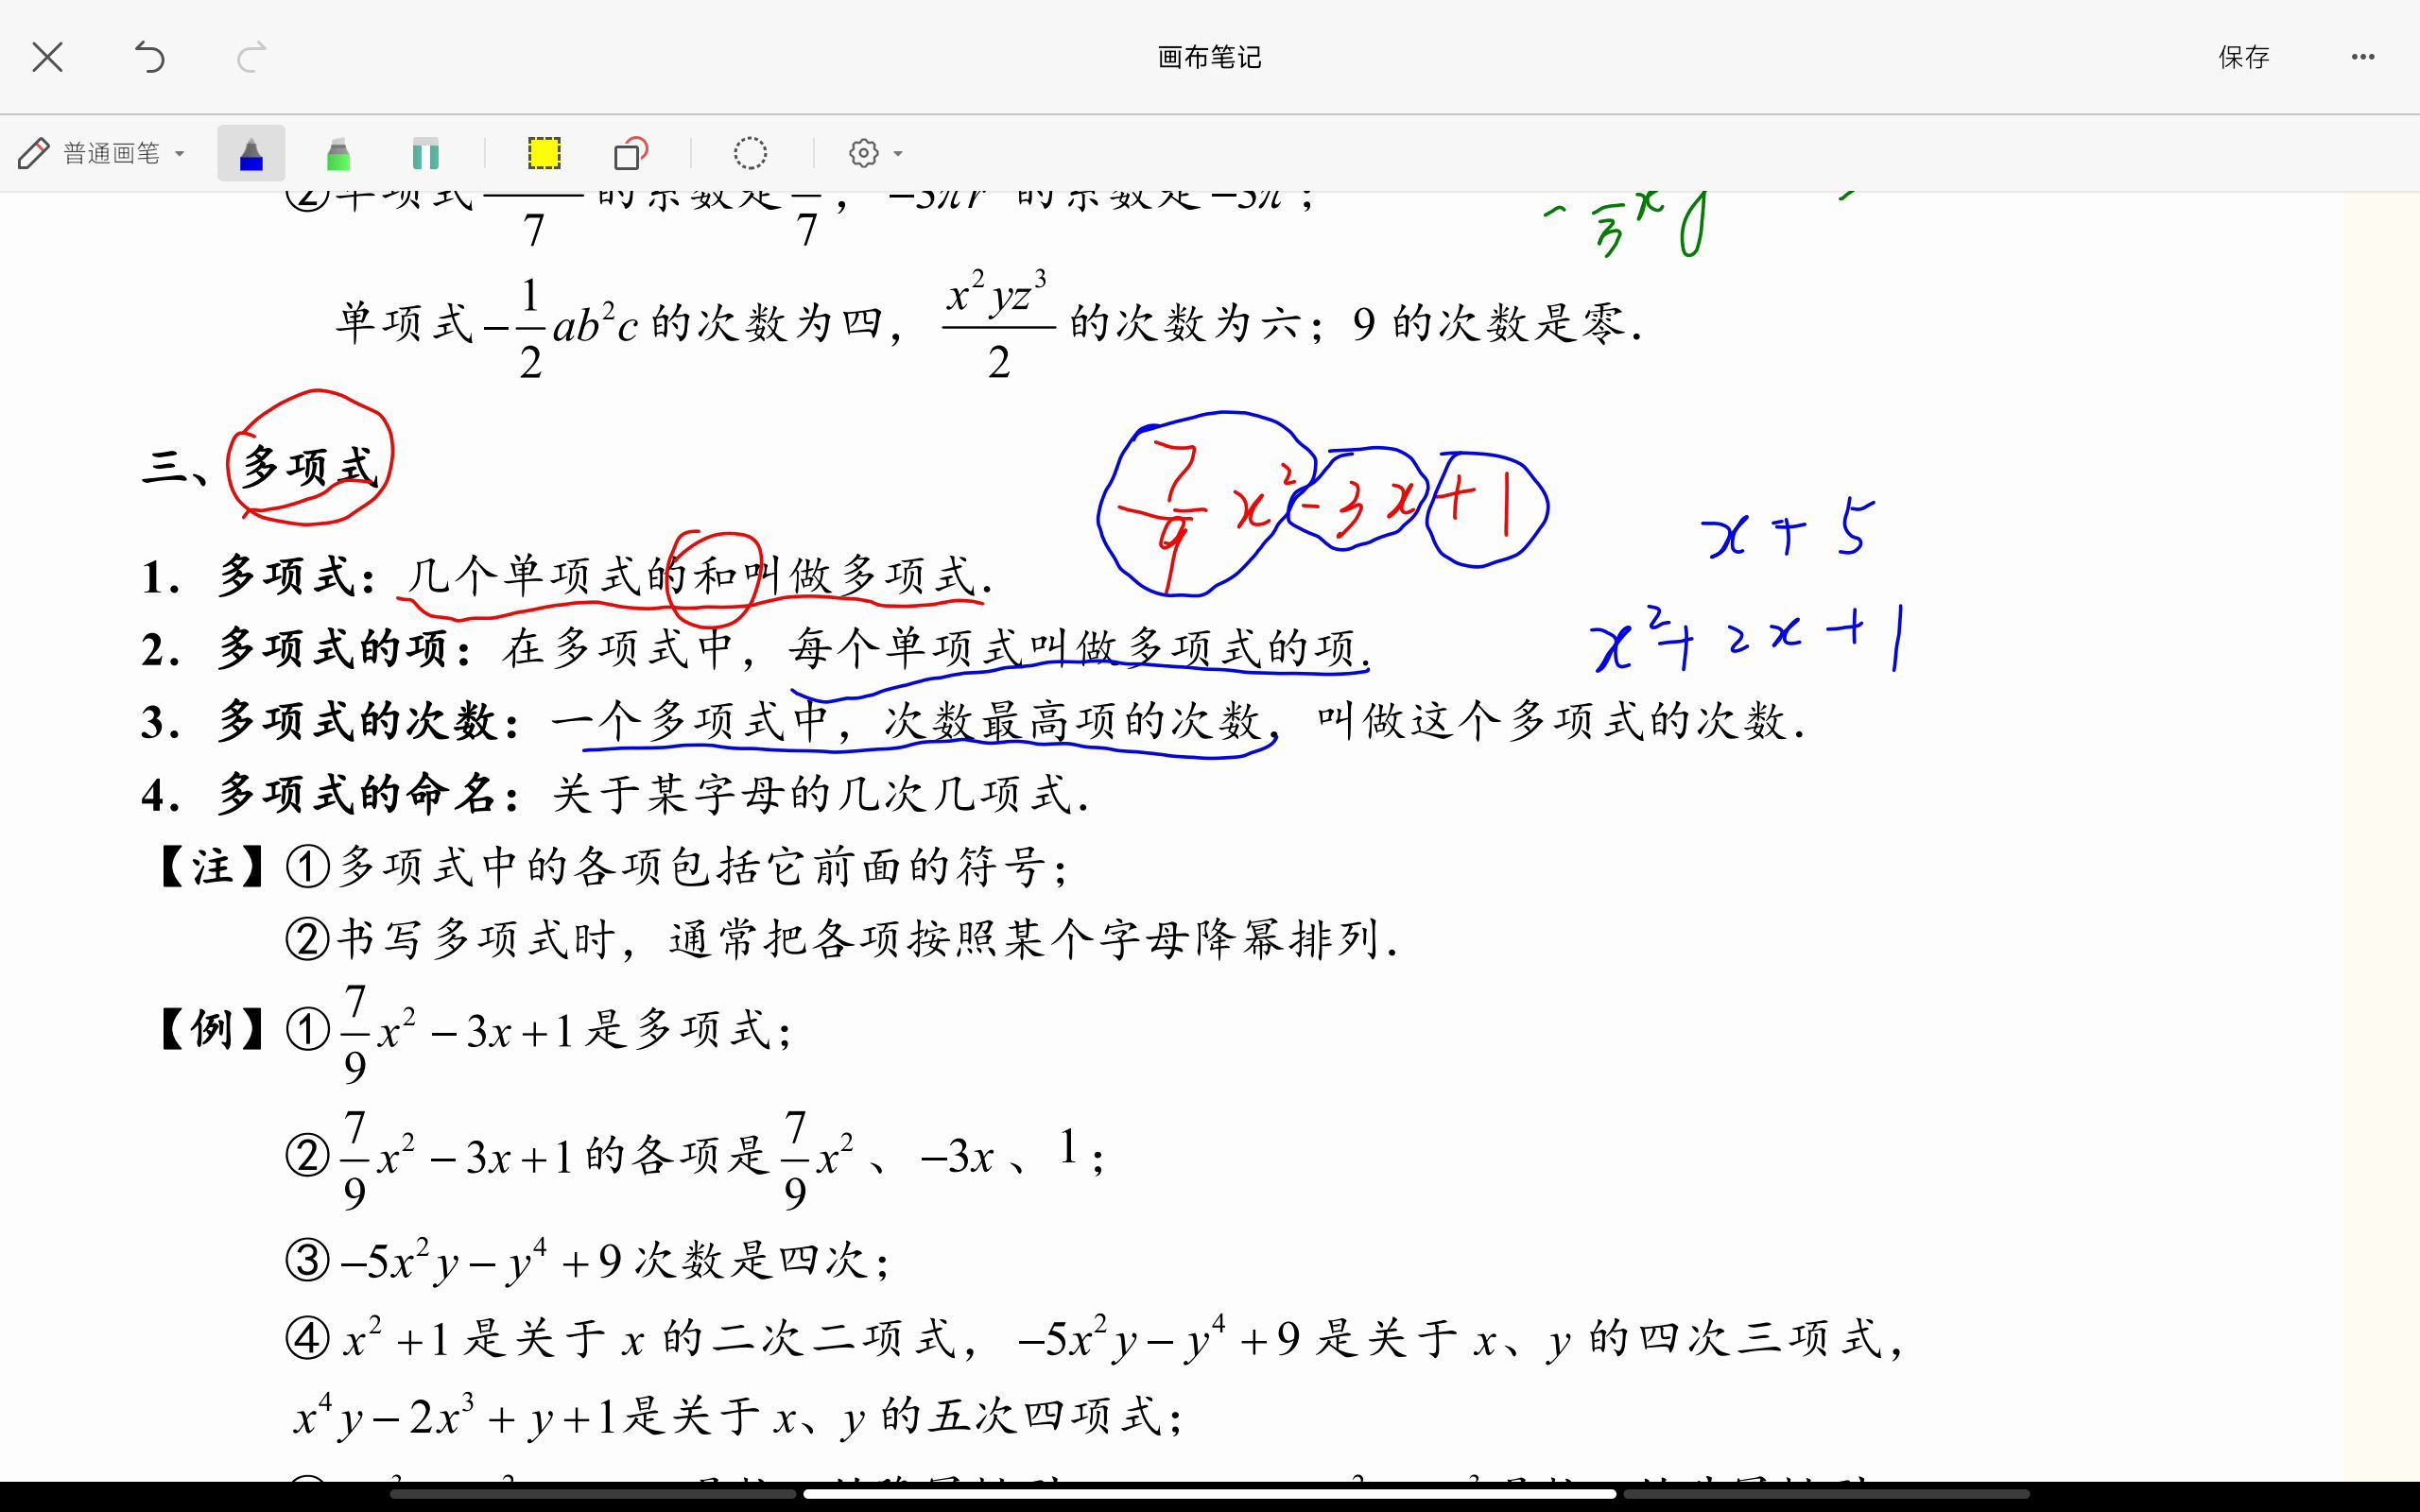 画布笔记
保存
普通画笔
②单项式 /7 的系数是 /7，-3πr 的系数是-3π；
单项式-1/2 ab²c 的次数为四，x²yz³/2 的次数为六；9 的次数是零．
三、多项式
7/9 x² - 3x + 1
x + 5
1．多项式：几个单项式的和叫做多项式．
x² + 2x + 1
2．多项式的项：在多项式中，每个单项式叫做多项式的项．
3．多项式的次数：一个多项式中，次数最高项的次数，叫做这个多项式的次数．
4．多项式的命名：关于某字母的几次几项式．
【注】①多项式中的各项包括它前面的符号；
②书写多项式时，通常把各项按照某个字母降幂排列．
【例】①7/9 x² - 3x + 1是多项式；
②7/9 x² - 3x + 1的各项是7/9 x²、-3x、1；
③-5x²y - y⁴ + 9次数是四次；
④x² + 1是关于 x 的二次二项式，-5x²y - y⁴ + 9是关于 x、y 的四次三项式，
x⁴y - 2x³ + y + 1是关于 x、y 的五次四项式；